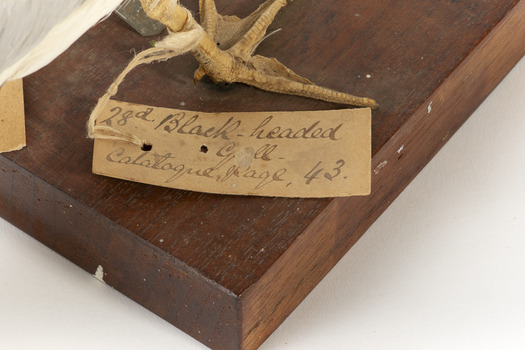 28d. Black-headed
Gull-
Catalogue, Page, 43.